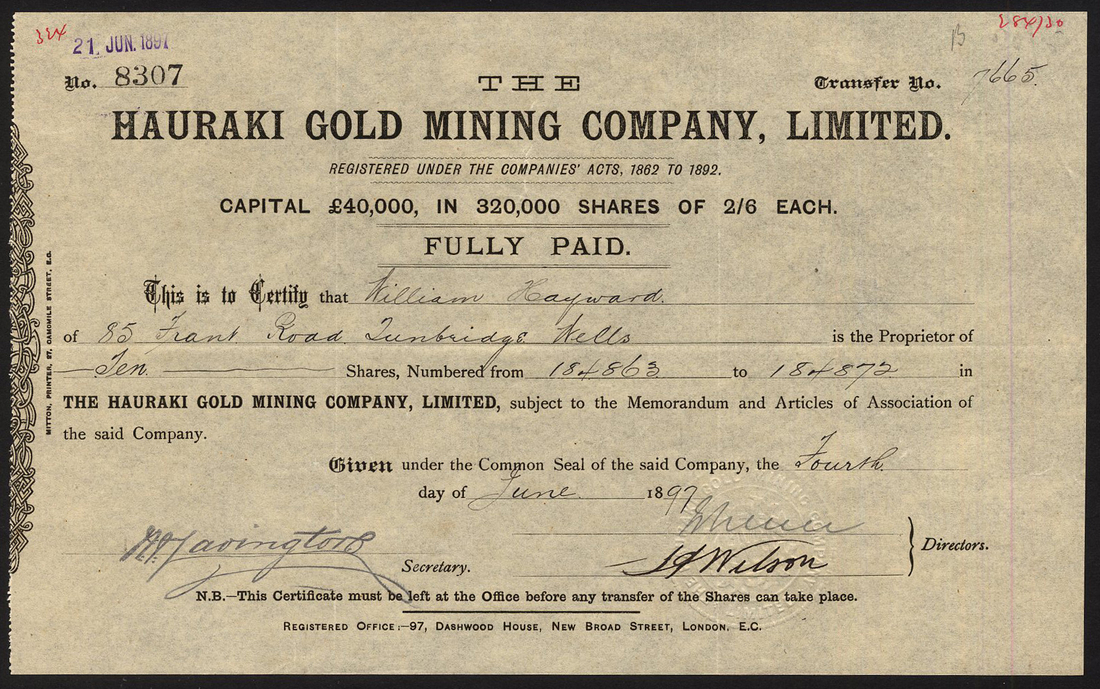 324
21 JUN. 1897
284/30
No. 8307
THE
Transfer No. 7665.
HAURAKI GOLD MINING COMPANY, LIMITED.
REGISTERED UNDER THE COMPANIES' ACTS, 1862 TO 1892.
CAPITAL £40,000, IN 320,000 SHARES OF 2/6 EACH.
FULLY PAID.
This is to Certify that William Hayward.
of 85 Frant Road Tunbridge Wells is the Proprietor of
Ten Shares, Numbered from 184863 to 184872 in
THE HAURAKI GOLD MINING COMPANY, LIMITED, subject to the Memorandum and Articles of Association of
the said Company.
Given under the Common Seal of the said Company, the Fourth
day of June 1897
Wilson
Directors.
Secretary.
N.B.—This Certificate must be left at the Office before any transfer of the Shares can take place.
REGISTERED OFFICE:—97, DASHWOOD HOUSE, NEW BROAD STREET, LONDON. E.C.
MITTON, PRINTER, ST. CAMOMILE STREET, E.C.